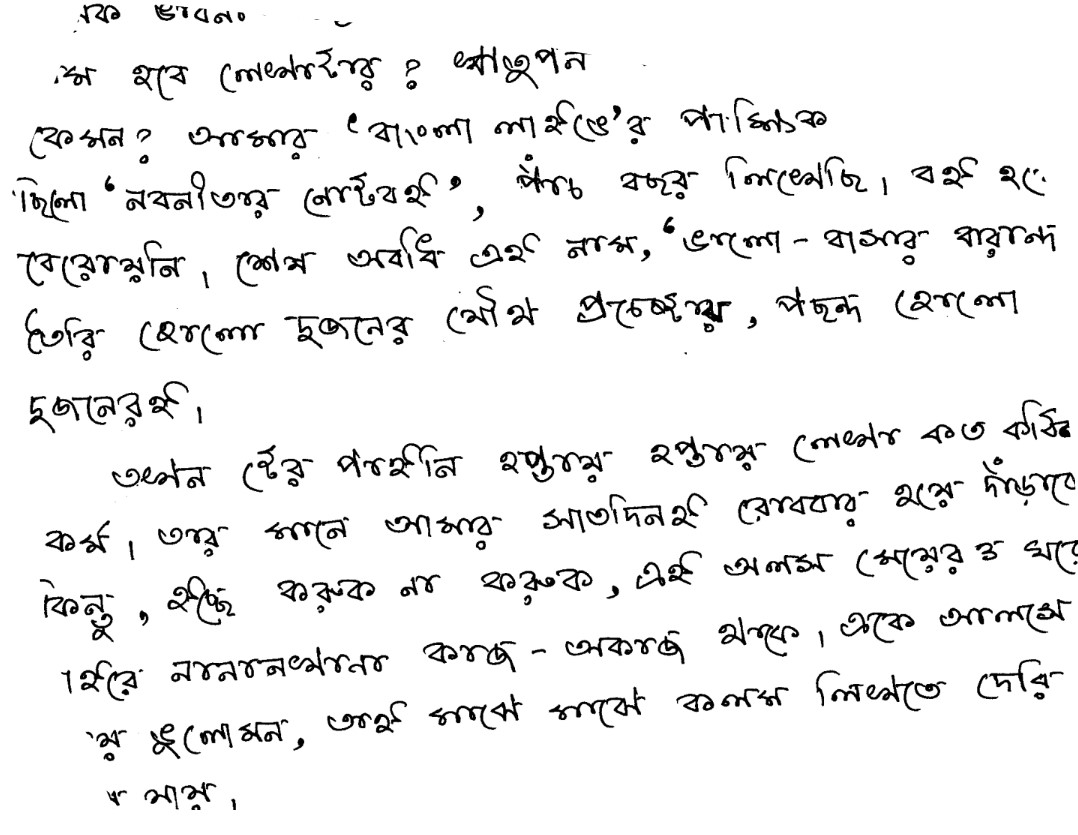 কি ভাবনা
হবে লেখাটার? ঋতুপর্ন
কেমন? আমার ‘বাংলা লাইভে’র পাক্ষিক
ছিলো ‘নবনীতার নোটবই’, পাঁচ বছর লিখেছি। বই হয়ে
বেরোয়নি। শেষ অবধি এই নাম, ‘ভালো-বাসার বারান্দ
তৈরি হোলো দুজনের যৌথ প্রচেষ্টায়, পছন্দ হোলো
দুজনেরই।
তখন টের পাইনি হপ্তায় হপ্তায় লেখা কত কঠিন
কর্ম। তার মানে আমার সাতদিনই রোববার হয়ে দাঁড়াবে
কিন্তু, ইচ্ছে করুক না করুক, এই অলস মেয়েরও ঘরে
ইরে নানানখানা কাজ-অকাজ থাকে। একে আলসে
য় ভুলোমন, তাই মাঝে মাঝে কলম লিখতে দেরি
যায়।